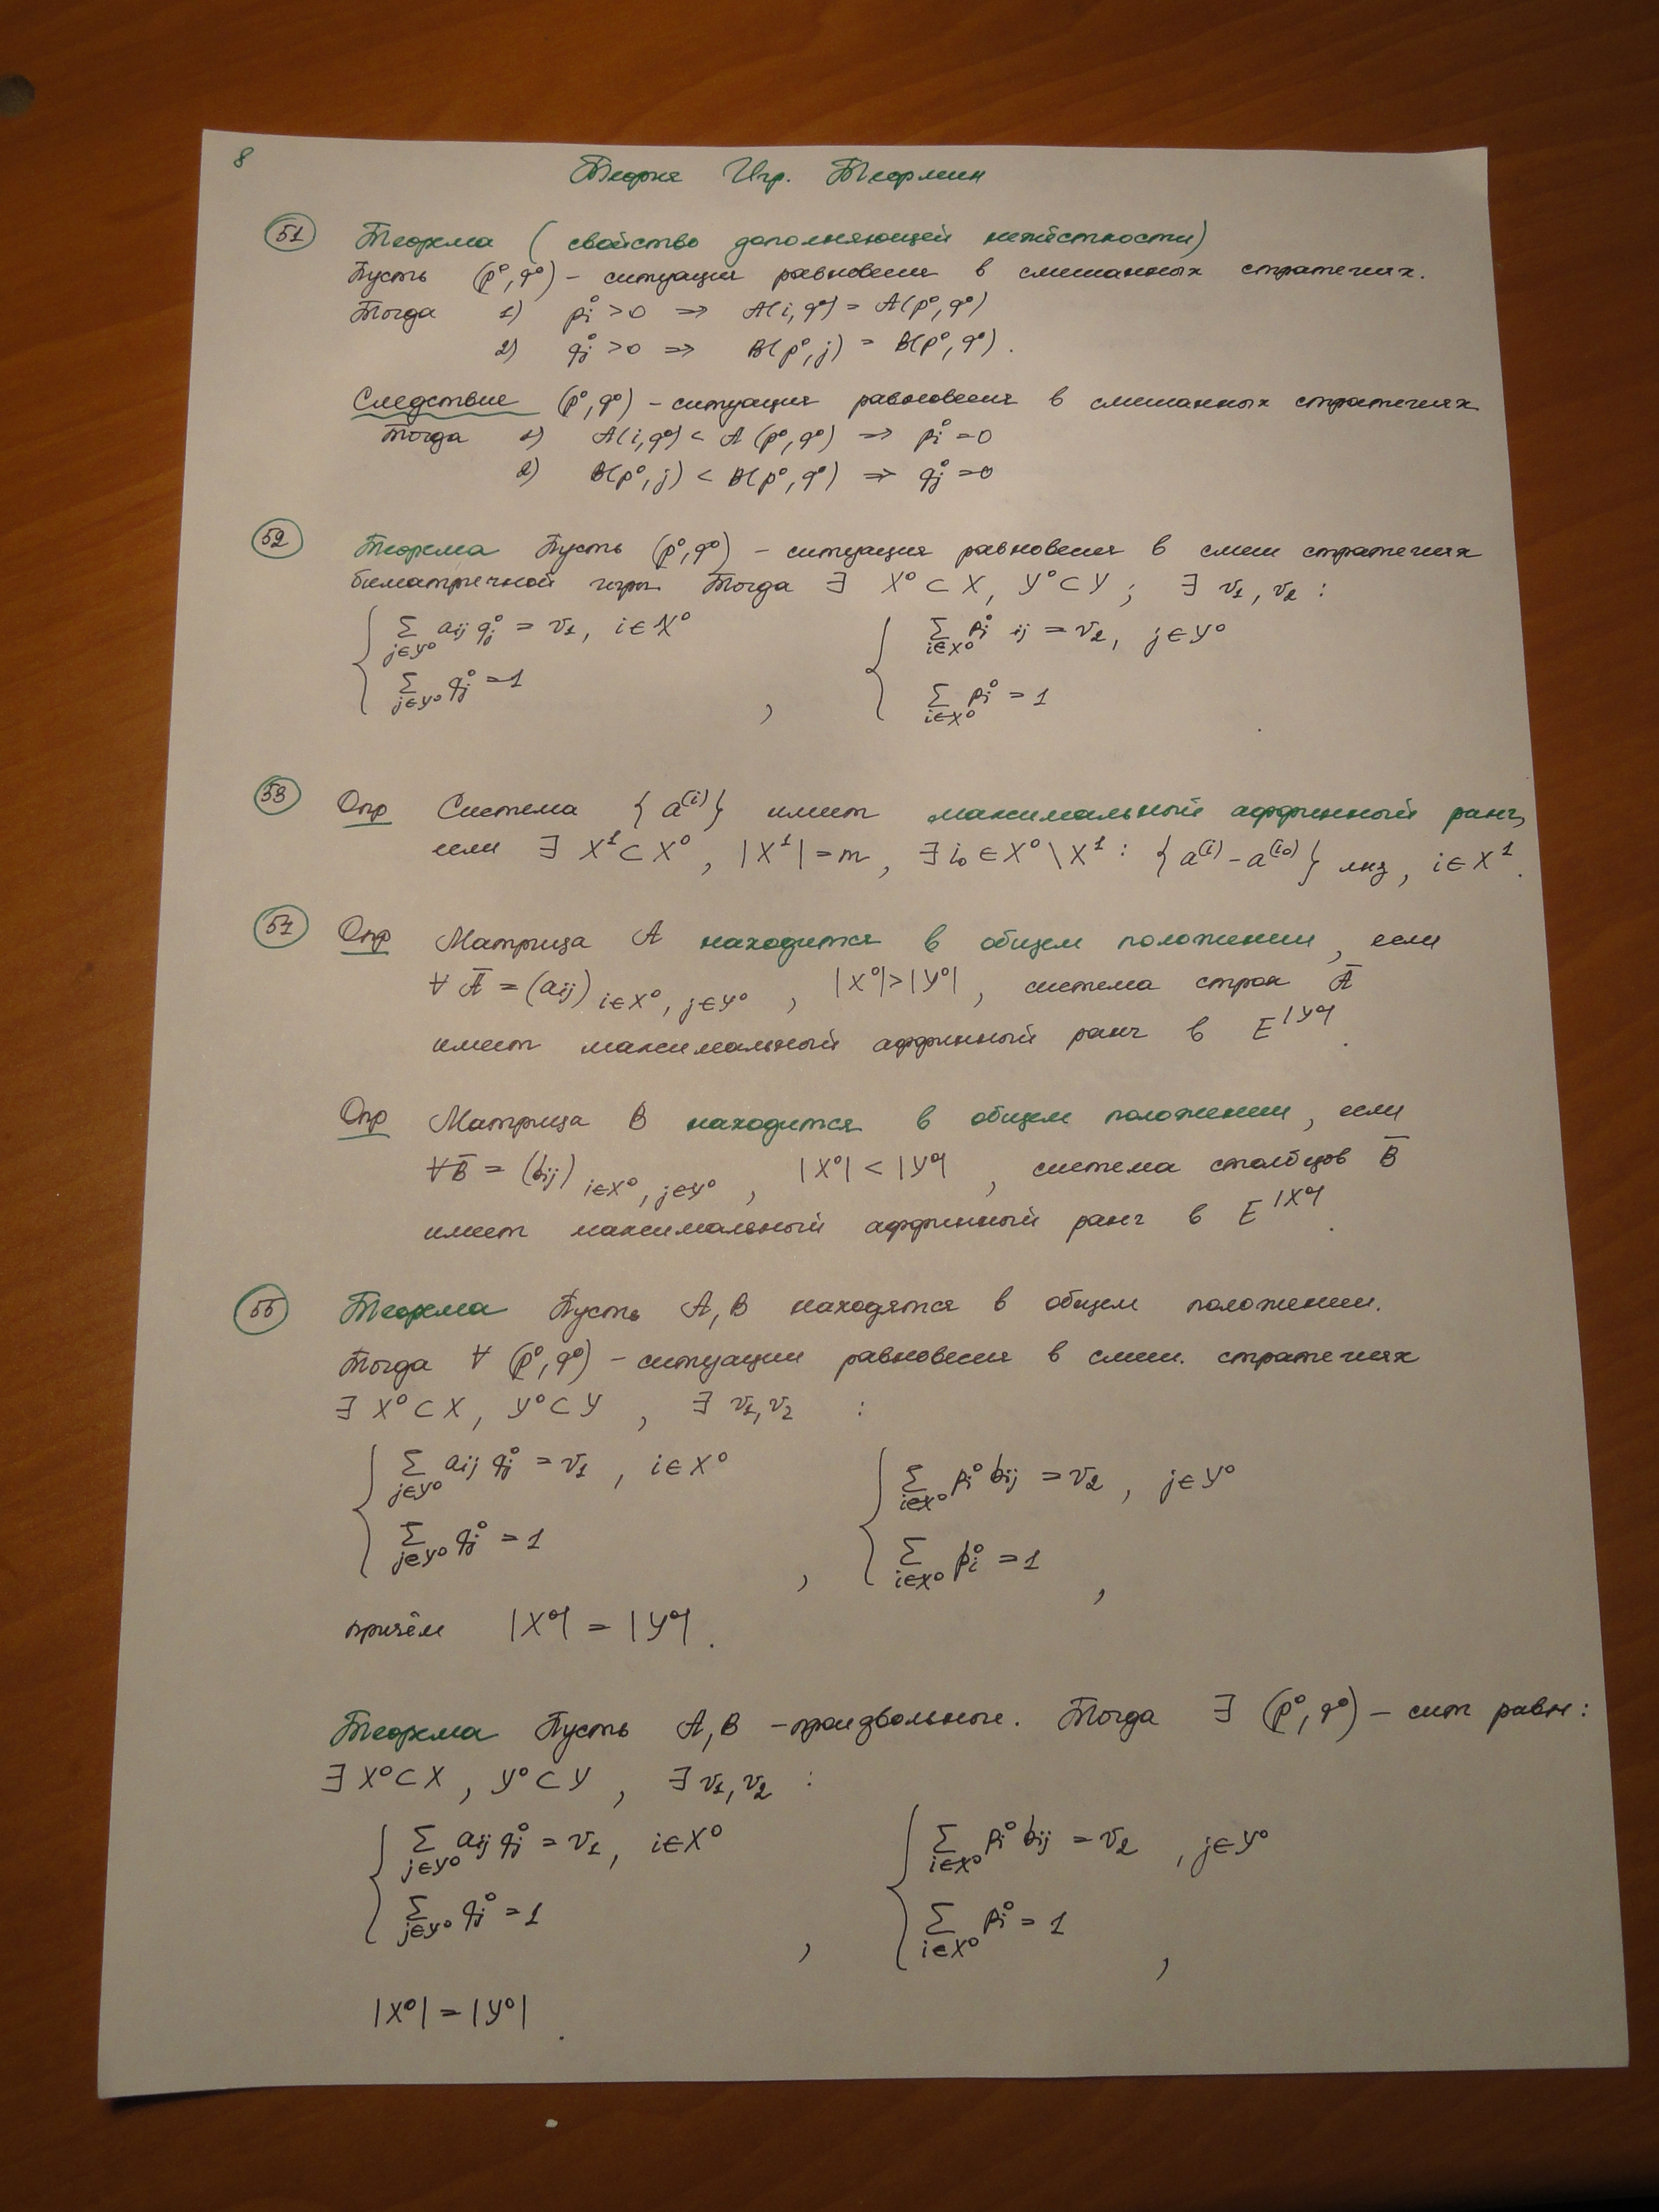 8
Теория Игр. Теормин
51 Теорема ( свойство дополняющей нежёсткости)
Пусть (p⁰, q⁰) – ситуация равновесия в смешанных стратегиях.
Тогда 1) pᵢ⁰ > 0 ⇒ A(i, q⁰) = A(p⁰, q⁰)
2) qⱼ⁰ > 0 ⇒ B(p⁰, j) = B(p⁰, q⁰).
Следствие (p⁰, q⁰) – ситуация равновесия в смешанных стратегиях
Тогда 1) A(i, q⁰) < A (p⁰, q⁰) ⇒ pᵢ⁰ = 0
2) B(p⁰, j) < B(p⁰, q⁰) ⇒ qⱼ⁰ = 0
52 Теорема Пусть (p⁰, q⁰) – ситуация равновесия в смеш стратегиях
биматричной игры Тогда ∃ X⁰ ⊂ X, Y⁰ ⊂ Y ; ∃ v₁, v₂ :
{ ∑_{j∈Y⁰} aᵢⱼ qⱼ⁰ = v₁, i ∈ X⁰ { ∑_{i∈X⁰} pᵢ⁰ ᵢⱼ = v₂, j ∈ Y⁰
∑_{j∈Y⁰} qⱼ⁰ = 1 , ∑_{i∈X⁰} pᵢ⁰ = 1 .
53 Опр Система { a⁽ⁱ⁾ } имеет максимальный аффинный ранг,
если ∃ X¹ ⊂ X⁰, |X¹| = m, ∃ i₀ ∈ X⁰ \ X¹ : { a⁽ⁱ⁾ – a⁽ⁱ⁰⁾ } лнз, i ∈ X¹.
54 Опр Матрица A находится в общем положении, если
∀ Ā = (aᵢⱼ) i∈X⁰, j∈Y⁰ , |X⁰| > |Y⁰| , система строк Ā
имеет максимальный аффинный ранг в E^|Y⁰| .
Опр Матрица B находится в общем положении, если
∀ B̄ = (bᵢⱼ) i∈X⁰, j∈Y⁰ , |X⁰| < |Y⁰| , система столбцов B̄
имеет максимальный аффинный ранг в E^|X⁰| .
55 Теорема Пусть A, B находятся в общем положении.
Тогда ∀ (p⁰, q⁰) – ситуации равновесия в смеш. стратегиях
∃ X⁰ ⊂ X, Y⁰ ⊂ Y , ∃ v₁, v₂ :
{ ∑_{j∈Y⁰} aᵢⱼ qⱼ⁰ = v₁ , i ∈ X⁰ { ∑_{i∈X⁰} pᵢ⁰ bᵢⱼ = v₂ , j ∈ Y⁰
∑_{j∈Y⁰} qⱼ⁰ = 1 , ∑_{i∈X⁰} pᵢ⁰ = 1 ,
причём |X⁰| = |Y⁰| .
Теорема Пусть A, B – произвольные. Тогда ∃ (p⁰, q⁰) – сит равн :
∃ X⁰ ⊂ X , Y⁰ ⊂ Y , ∃ v₁, v₂ :
{ ∑_{j∈Y⁰} aᵢⱼ qⱼ⁰ = v₁ , i ∈ X⁰ { ∑_{i∈X⁰} pᵢ⁰ bᵢⱼ = v₂ , j ∈ Y⁰
∑_{j∈Y⁰} qⱼ⁰ = 1 , ∑_{i∈X⁰} pᵢ⁰ = 1 ,
|X⁰| = |Y⁰| .